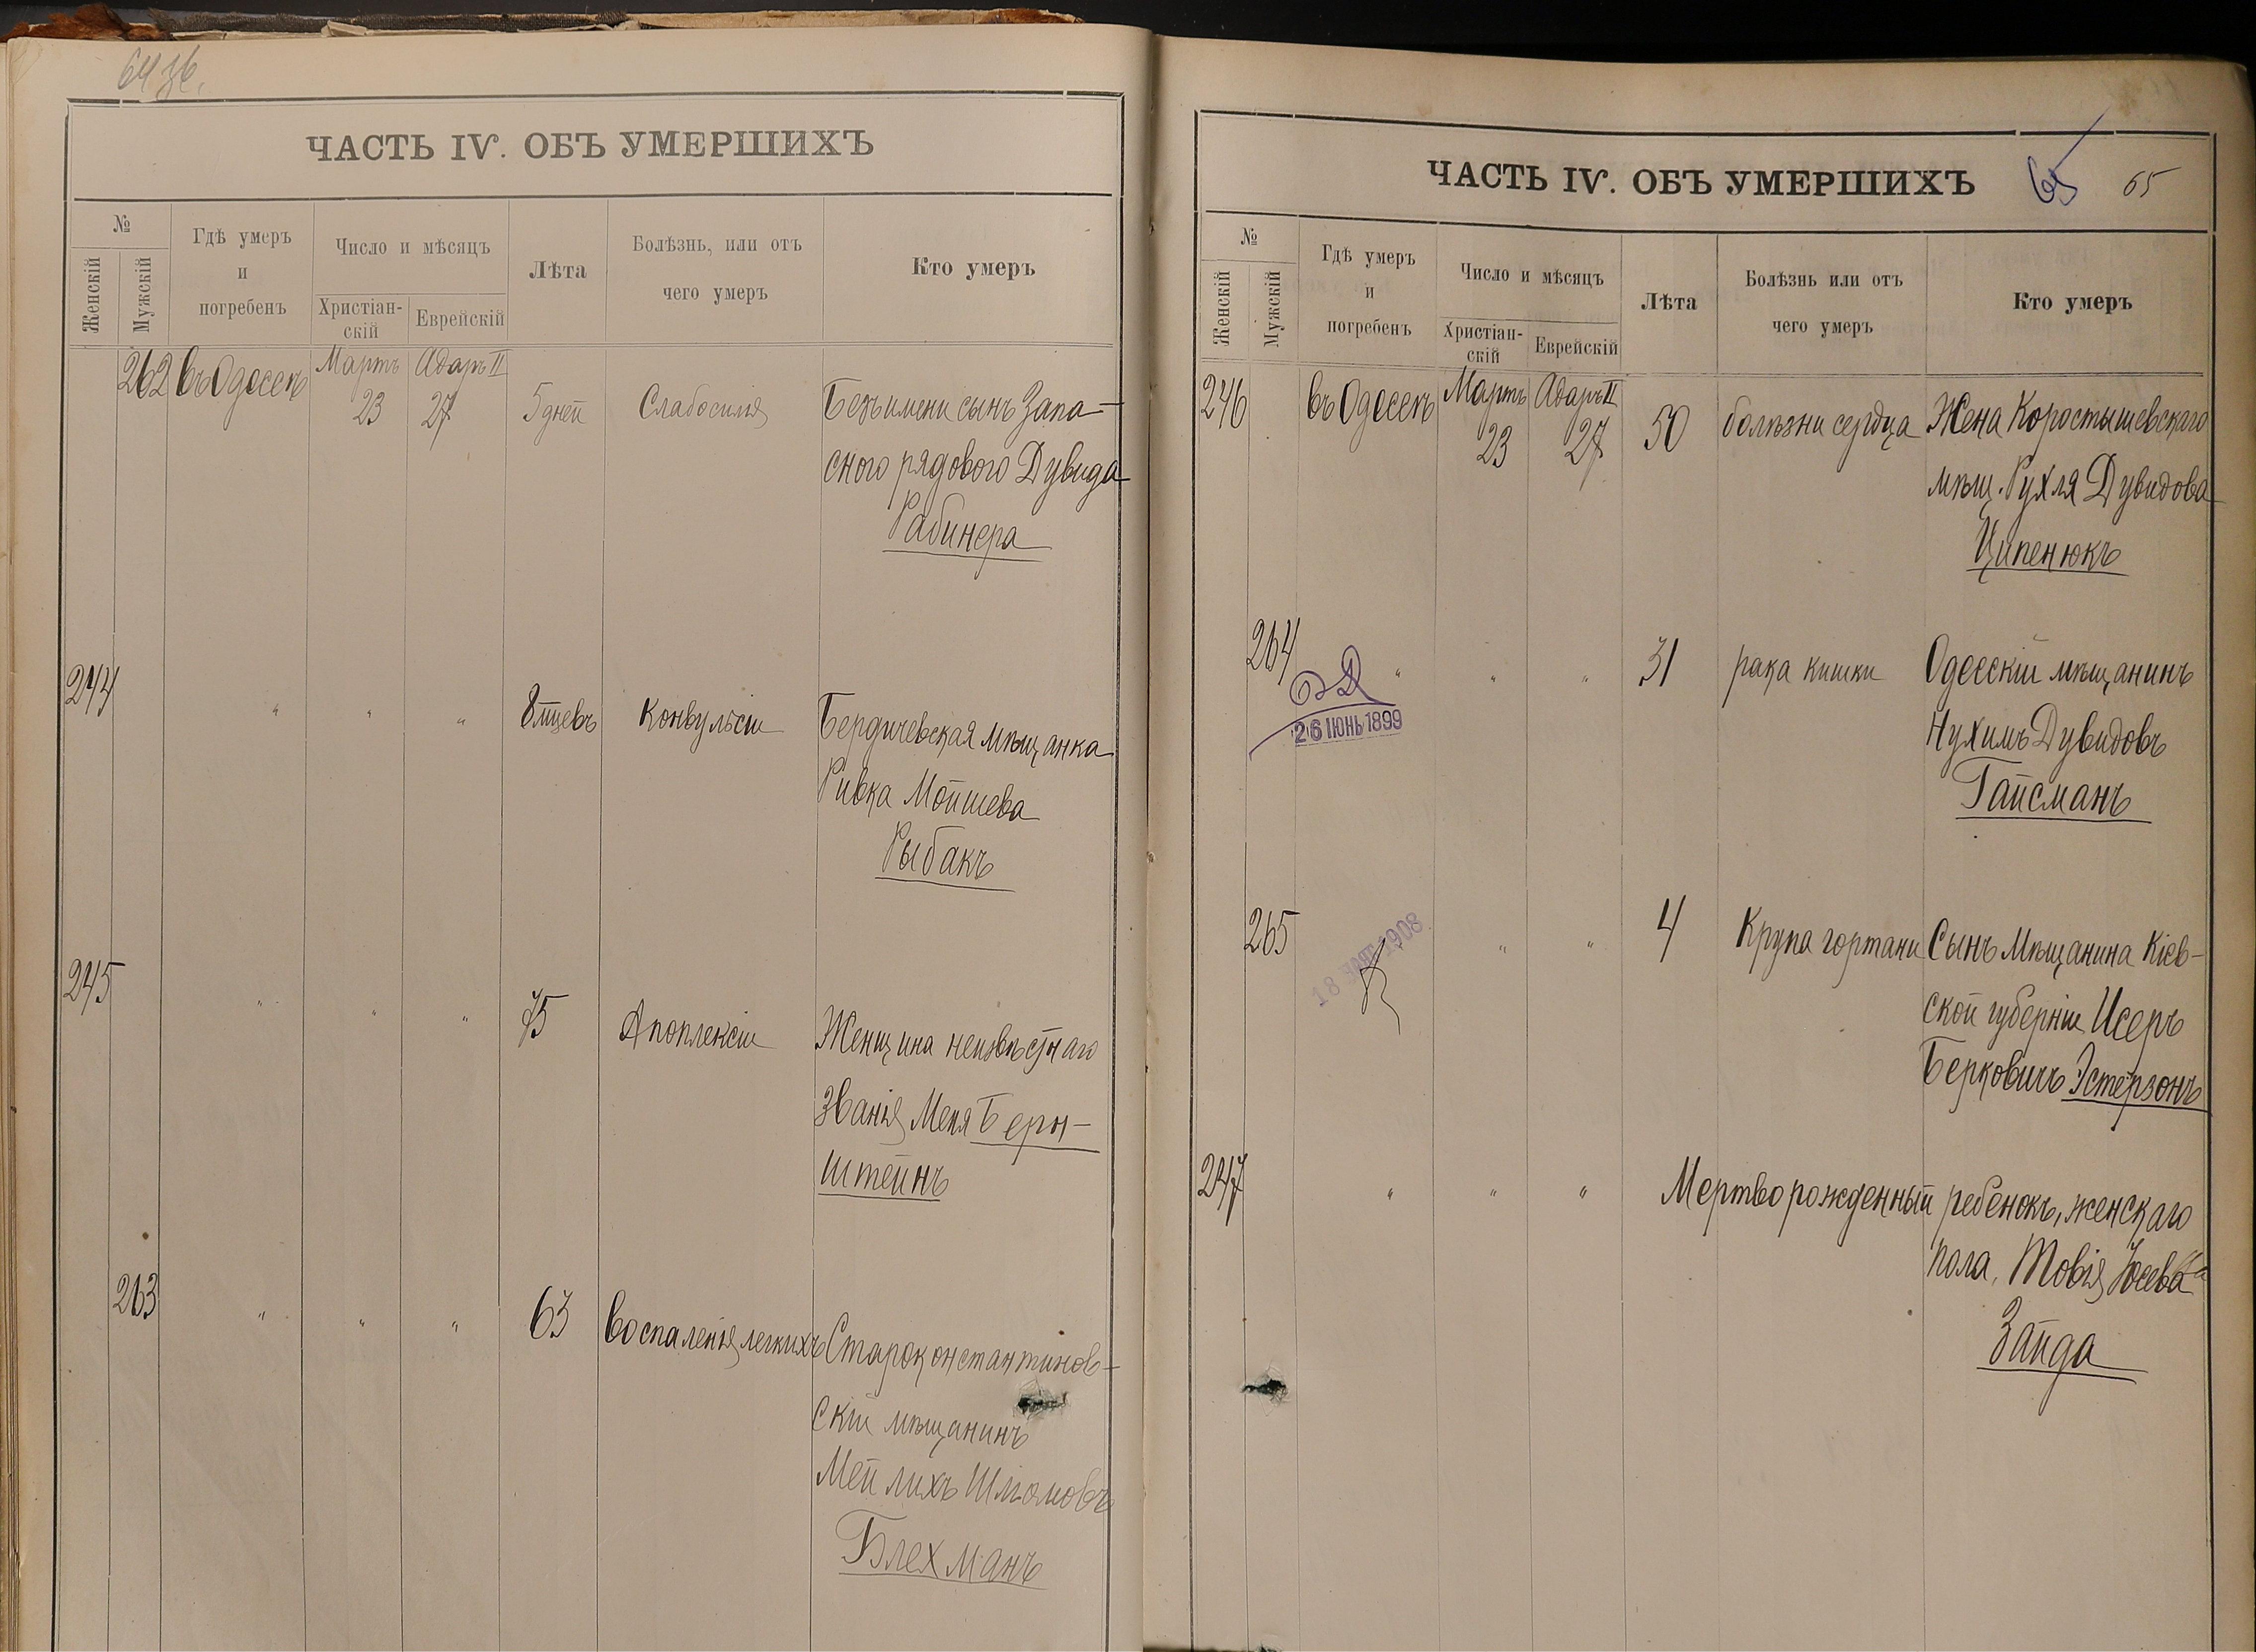 64 зв.
ЧАСТЬ IV. ОБЪ УМЕРШИХЪ
№
Женскій
Мужскій
Гдѣ умеръ
и
погребенъ
Число и мѣсяцъ
Христіан-
скій
Еврейскій
Лѣта
Болѣзнь, или отъ
чего умеръ
Кто умеръ
262 въ Одессѣ Мартъ 23 Адаръ II 27 5 дней Слабосилія Безъ имени сынъ Запа-
снаго рядового Дувида
Рабинера
244 " " " 8 мцевъ Конвульсіи Бердичевская мѣщанка
Ривка Мойшева
Рыбакъ
245 " " " 75 Апоплексіи Женщина неизвѣстнаго
званія Меня Берн-
штейнъ
263 " " " 63 воспаленія легкихъ Староконстантинов-
скій мѣщанинъ
Мейлихъ Шліомовъ
Блехманъ
ЧАСТЬ IV. ОБЪ УМЕРШИХЪ 65 65
№
Женскій
Мужскій
Гдѣ умеръ
и
погребенъ
Число и мѣсяцъ
Христіан-
скій
Еврейскій
Лѣта
Болѣзнь или отъ
чего умеръ
Кто умеръ
246 въ Одессѣ Мартъ 23 Адаръ II 27 50 болѣзни сердца Жена Коростышевскаго
мѣщ. Рухля Дувидова
Ципенюкъ
264 " " " 31 рака кишки Одесскій мѣщанинъ
Нухимъ Дувидовъ
Гайсманъ
26 ІЮНЬ 1899
265 " " 4 Крупа гортани Сынъ Мѣщанина Кіев-
ской губерніи Исеръ
Берковичъ Эстерзонъ
18 1908
247 " " " Мертворожденный ребенокъ, женскаго
пола, Товія Іосева
Зайда